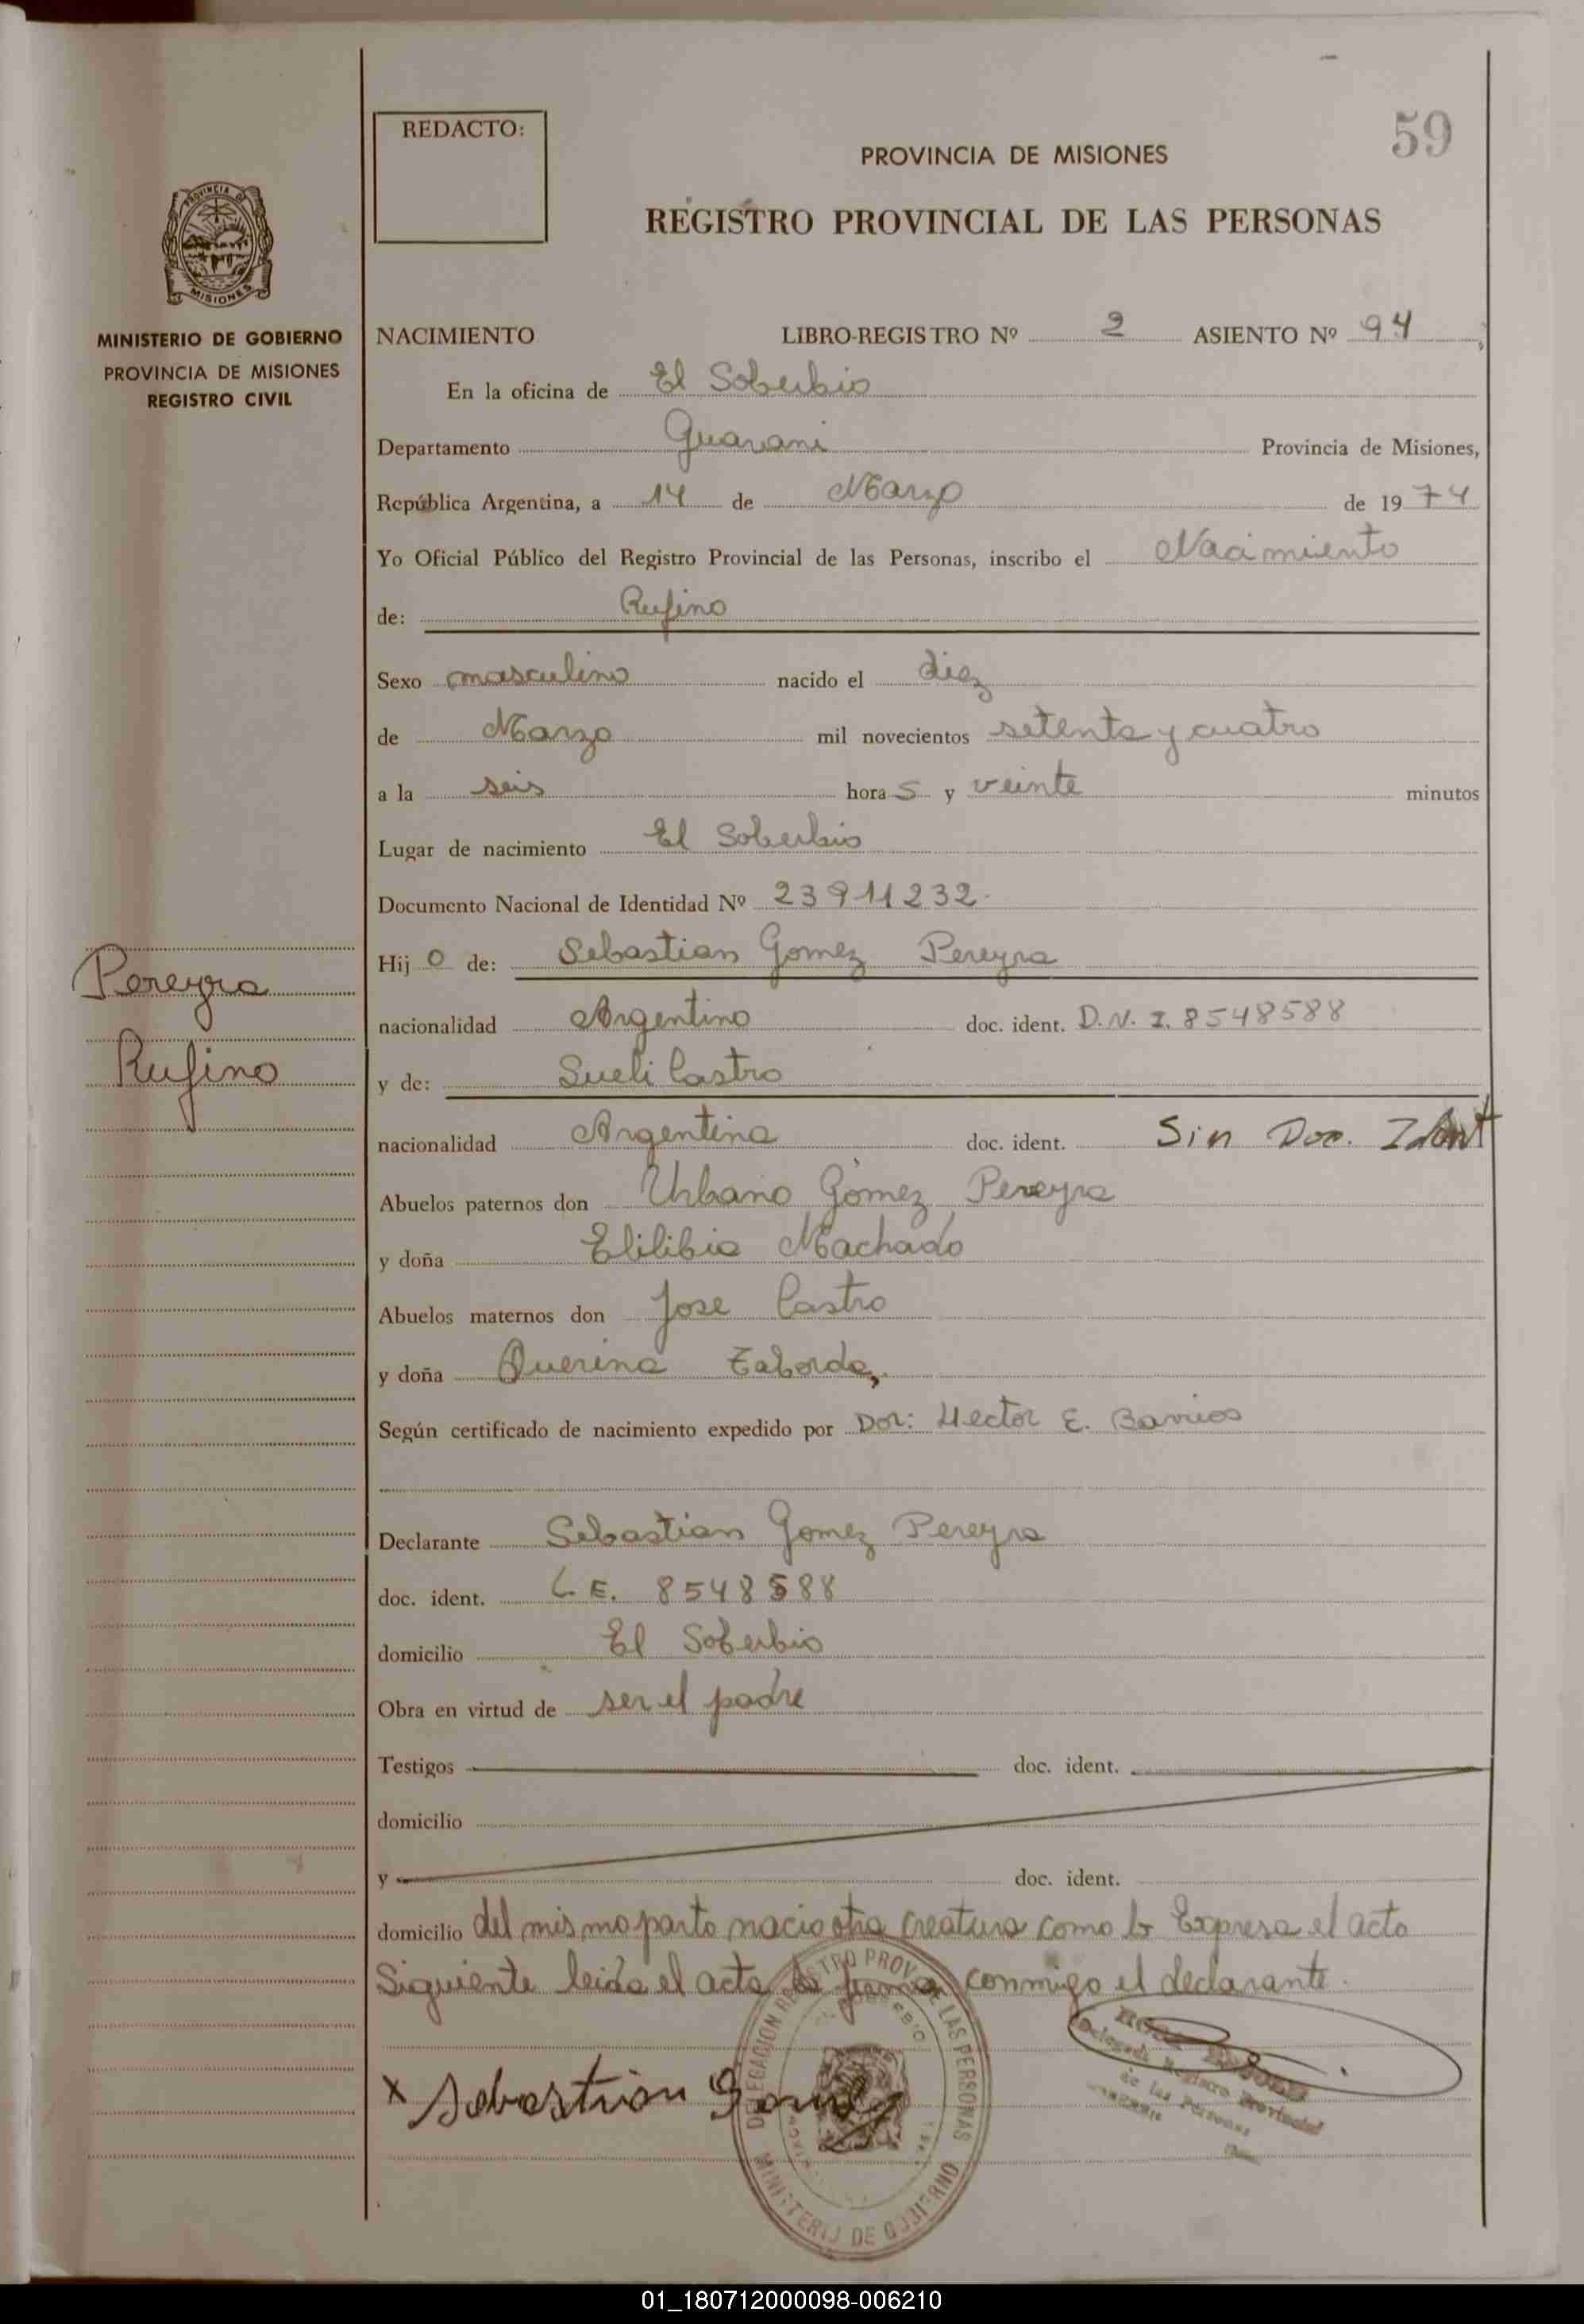 REDACTO:
59
PROVINCIA DE MISIONES
REGISTRO PROVINCIAL DE LAS PERSONAS
PROVINCIA DE
MISIONES
MINISTERIO DE GOBIERNO
PROVINCIA DE MISIONES
REGISTRO CIVIL
NACIMIENTO LIBRO-REGISTRO Nº 2 ASIENTO Nº 94
En la oficina de El Soberbio
Departamento Guarani Provincia de Misiones,
República Argentina, a 14 de Marzo de 1974
Yo Oficial Público del Registro Provincial de las Personas, inscribo el Nacimiento
de: Rufino
Sexo masculino nacido el diez
de Marzo mil novecientos setenta y cuatro
a la seis hora s y veinte minutos
Lugar de nacimiento El Soberbio
Documento Nacional de Identidad Nº 23911232.
Hij o de: Sebastian Gomez Pereyra
Pereyra
nacionalidad Argentino doc. ident. D.N.I. 8548588
Rufino
y de: Sueli Castro
nacionalidad Argentina doc. ident. Sin Doc. Ident
Abuelos paternos don Urbano Gomez Pereyra
y doña Elilibia Machado
Abuelos maternos don Jose Castro
y doña Querina Taborda,
Según certificado de nacimiento expedido por Dor: Hector E. Barrios
Declarante Sebastian Gomez Pereyra
doc. ident. L.E. 8548588
domicilio El Soberbio
Obra en virtud de ser el padre
Testigos doc. ident.
domicilio
y doc. ident.
domicilio del mismo parto nacio otra creatura como lo Expresa el acta
Siguiente leida el acta la firma conmigo el declarante.
DELEGACION REGISTRO PROV. DE LAS PERSONAS
MINISTERIO DE GOBIERNO
x Sebastian Gomez
Delegada Registro Provincial
de las Personas
01_180712000098-006210